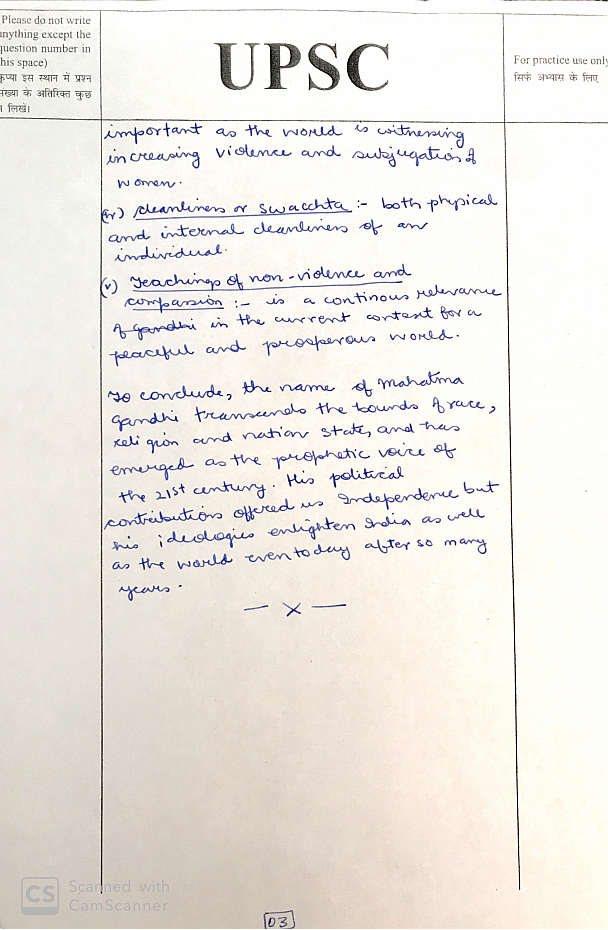 Please do not write
anything except the
question number in
this space)
कृप्या इस स्थान में प्रश्न
संख्या के अतिरिक्त कुछ
न लिखें।
UPSC
For practice use only
सिर्फ अभ्यास के लिए
important as the world is witnessing
increasing violence and subjugation of
women.
(iv) cleanliness or swacchta :- both physical
and internal cleanliness of an
individual.
(v) Teachings of non-violence and
compassion :- is a continous relevance
of gandhi in the current context for a
peaceful and prosperous world.
To conclude, the name of Mahatma
Gandhi transcends the bounds of race,
religion and nation state, and has
emerged as the prophetic voice of
the 21st century. His political
contributions offered us Independence but
his ideologies enlighten India as well
as the world even today after so many
years.
— x —
CS Scanned with
CamScanner
03